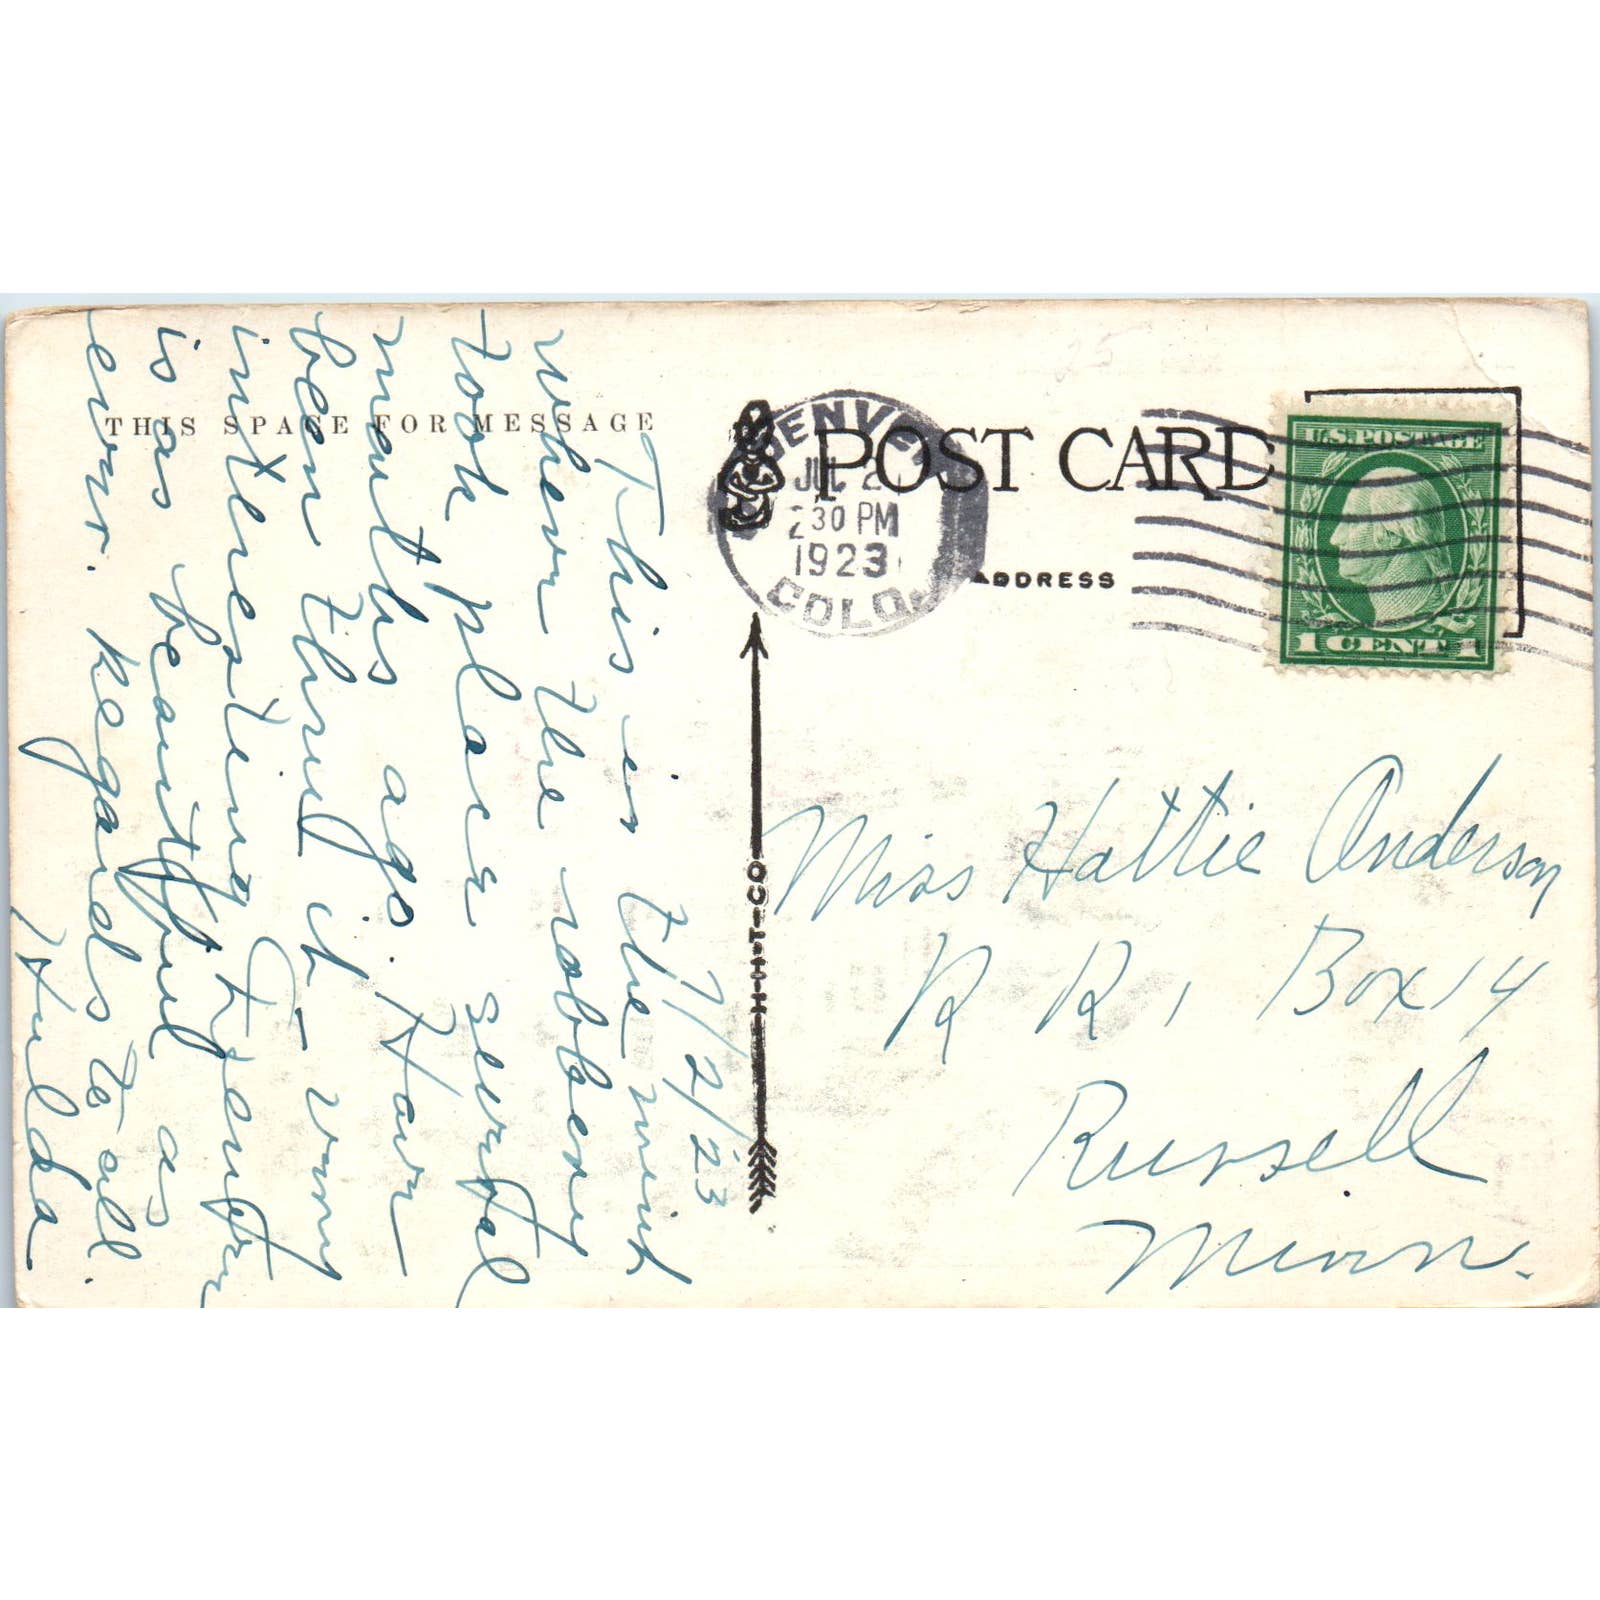 THIS SPACE FOR MESSAGE
7/2/23
This is the mint
where the robbery
took place several
months ago. Have
been thru it - very
interesting & Denver
is as beautiful as
ever. Regards to all.
Hulda
POST CARD
DENVER
JUL 2
2 30 PM
1923
COLO.
ADDRESS
U.S. POSTAGE
1 CENT 1
H-H-T-CO
Miss Hattie Anderson
R R 1 Box 14
Russell
Minn.